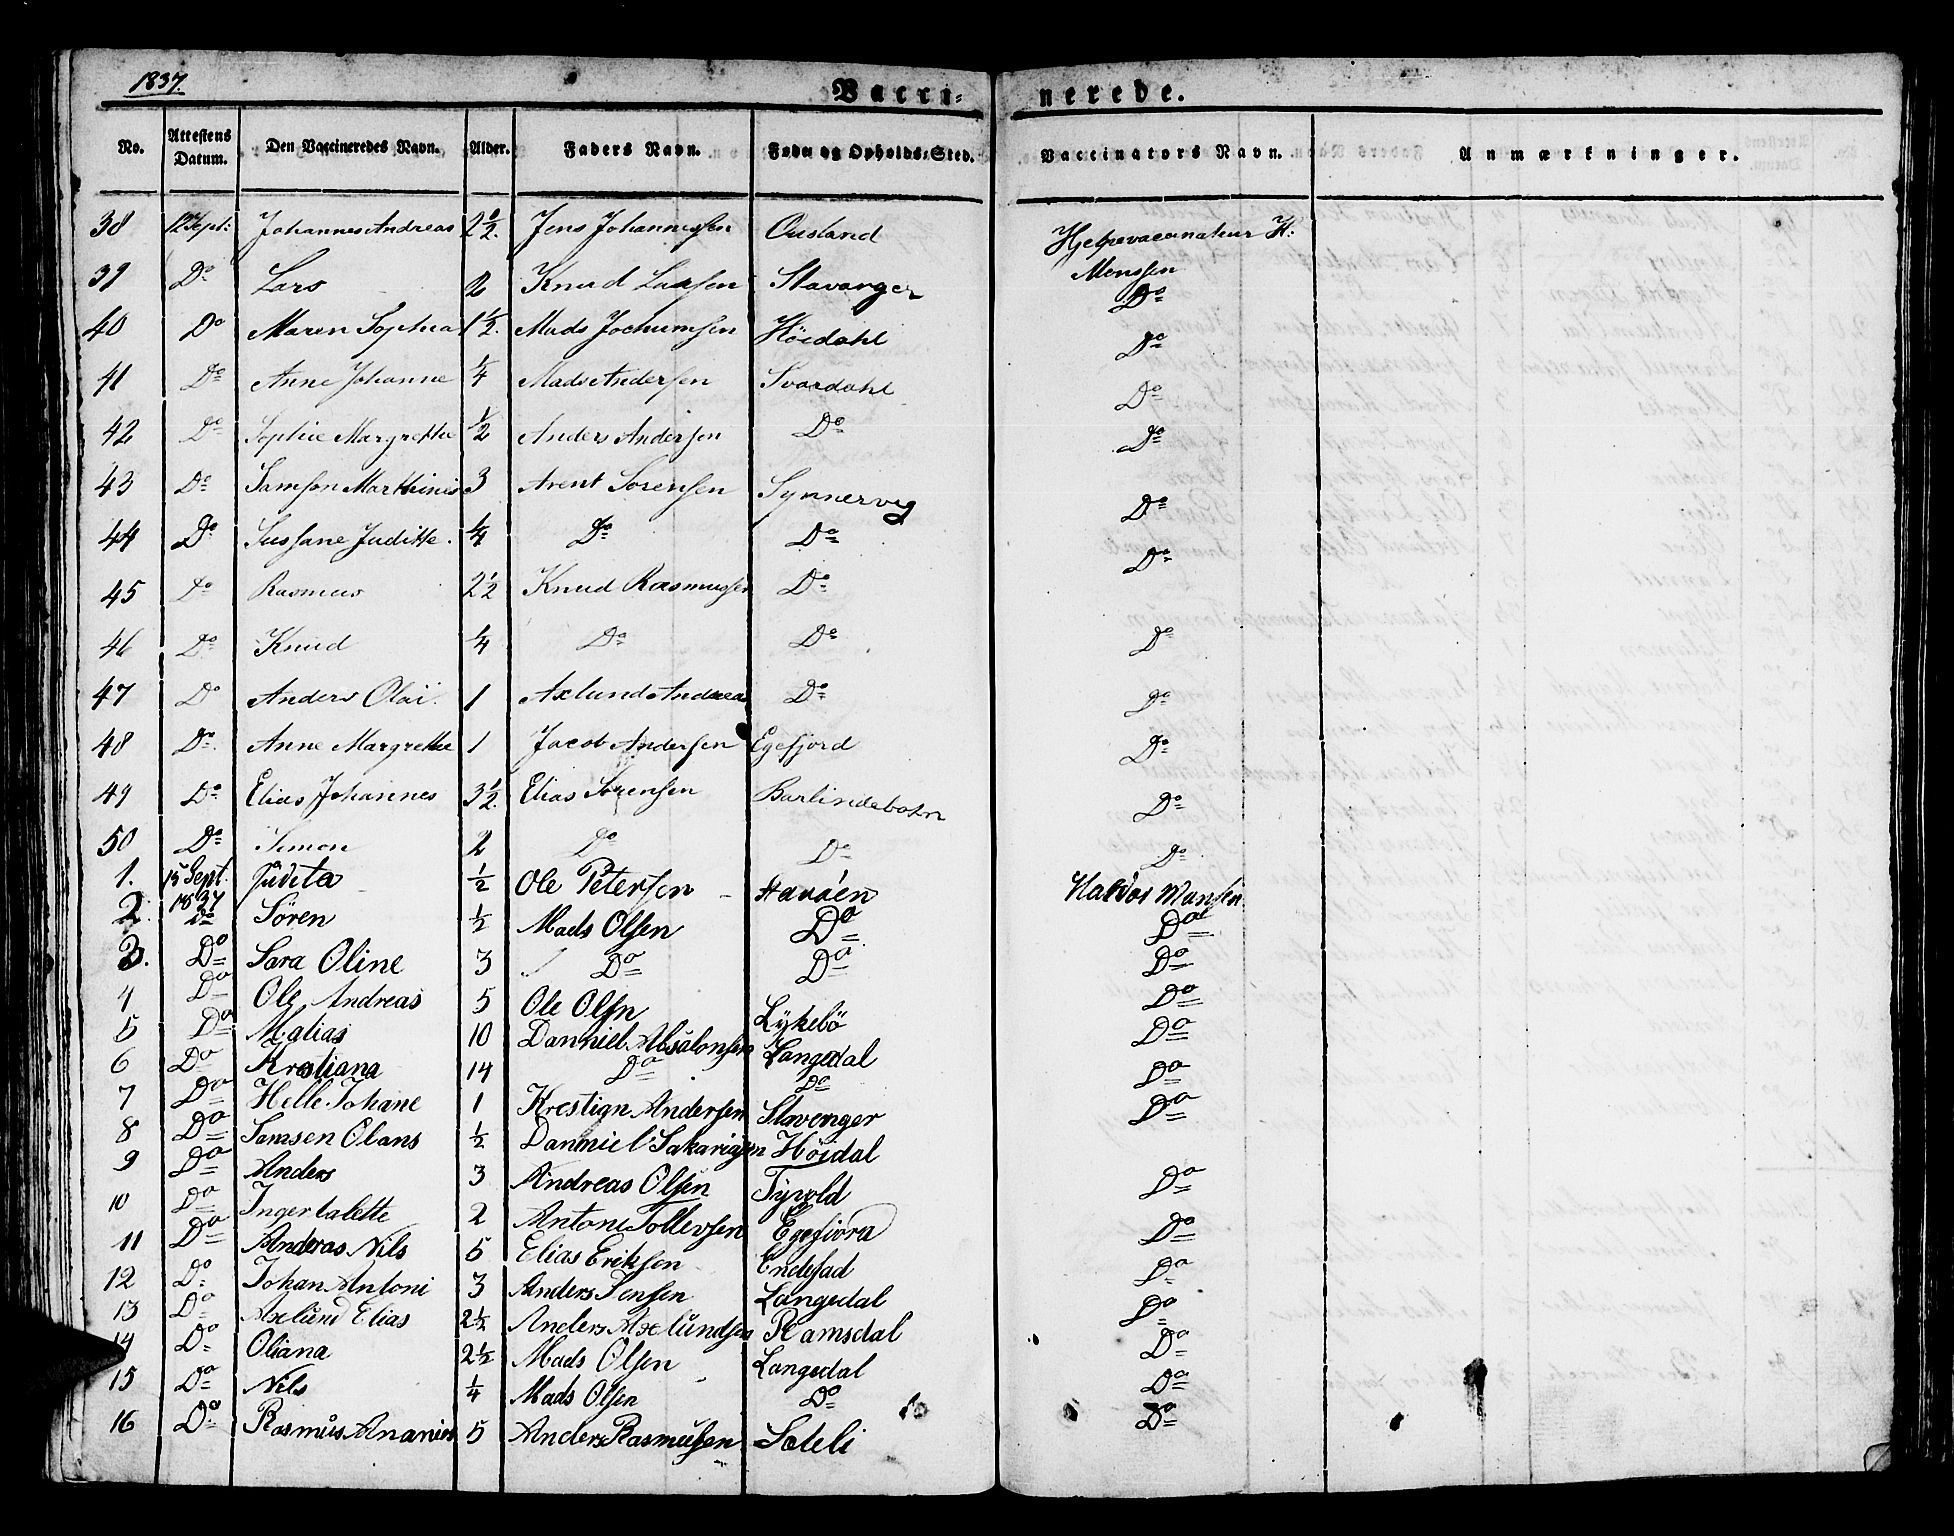 1837.
Vacci- nerede.
No. Attestens Datum. Den Vaccineredes Navn. Alder. Faders Navn. Føde og Opholds-Sted. Vaccinators Navn. Anmærkninger.
38 12 Sept: Johannes Andreas 2 1/2. Jens Johannessen Ousland Hjelpevaccinateur H:
Monssen
39 Do Lars 2 Knud Larsen Stavanger Do
40 Do Maren Sophia 1 1/2. Mads Jochumsen Höidahl Do
41 Do Anne Johanne 1/4 Mads Andersen Svardahl Do
42 Do Sophie Margrethe 1/2 Anders Andersen Do Do
43 Do Samson Marthinis 3 Arent Sorensen Synnervig Do
44 Do Sussane Judithe. 1/4 Do Do Do
45 Do Rasmus 2 1/2 Knud Rasmussen Do
46 Do Knud 1/4 Do Do Do
47 Do Anders Olai. 1 Axlund Andreas Do Do
48 Do Anne Margrethe 1 Jacob Andersen Egefjord Do
49 Do Elias Johannes 3 1/2. Elias Sorensen Barlindebotn Do
50 Do Simon 2 Do Do Do
1. 15 Sept. 1837 Judeta 1/2 Ole Petersen Havöen Hansen
2. Do Sören 1/2 Mads Olsen Do Do
3. Do Sara Oline 3 Do Do Do
4 Do Ole Andreas 5 Ole Olsn Lykebö Do
5 Do Matias 10 Danniel Absalonsen Langedal Do
6 Do Krestiana 14 Do Do Do
7 Do Helle Johane 1 Krestign Andersen Stavenger Do
8 Do Samsen Olans 1/2 Danniel Sakariasen Höidal
9 Do Anders 3 Andreas Olsen Tyvold Do
10 Do Inger talette 2 Antoni Tollevsen Egefiora Do
11 Do Anderas Nils 5 Elias Eriksen Endesad Do
12 Do Johan Antoni 3 Anders Jensen Langedal Do
13 Do Axlund Elias 2 1/2 Anders Axlundsen Ramsdal Do
14 Do Oliana 2 1/2 Mads Olsen Langedal Do
15 Do Nils 1/4 Mads Olsen Do Do
16 Do Rasmus Ananias 5 Anders Rasmussen Soteli